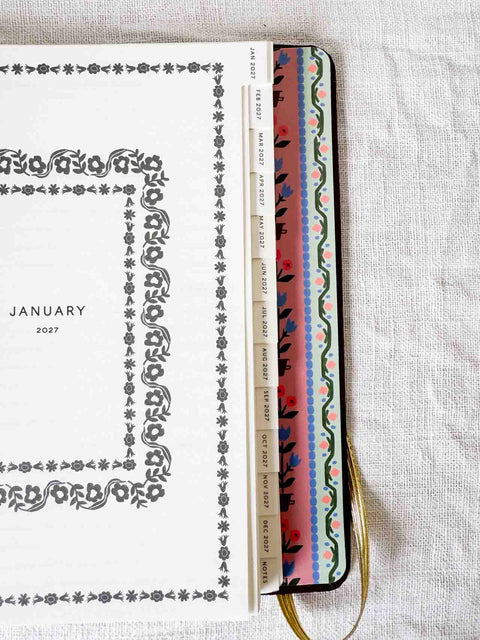 JANUARY
2027
JAN 2027
FEB 2027
MAR 2027
APR 2027
MAY 2027
JUN 2027
JUL 2027
AUG 2027
SEP 2027
OCT 2027
NOV 2027
DEC 2027
NOTES